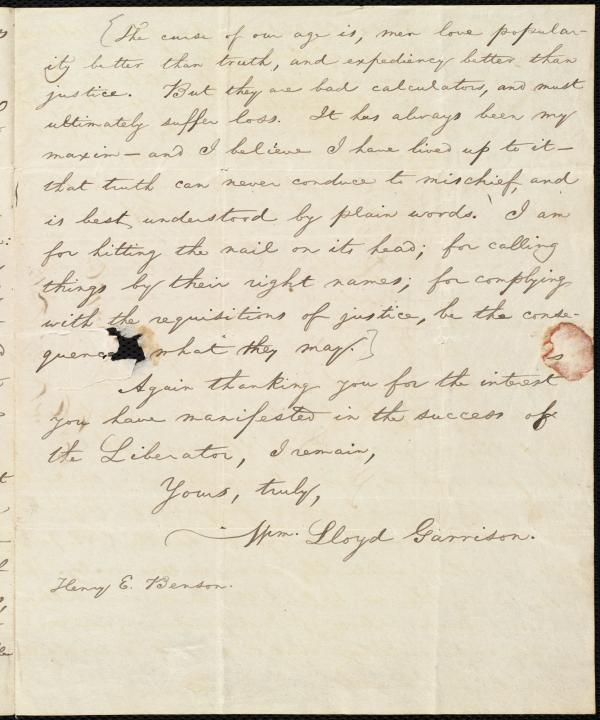 [The curse of our age is, men love popular-
ity better than truth, and expediency better than
justice. But they are bad calculators, and must
ultimately suffer loss. It has always been my
maxim — and I believe I have lived up to it —
that truth can never conduce to mischief, and
is best understood by plain words. I am
for hitting the nail on its head; for calling
things by their right names; for complying
with the requisitions of justice, be the conse-
quences what they may.]
Again thanking you for the interest
you have manifested in the success of
the Liberator, I remain,
Yours, truly,
Wm. Lloyd Garrison.
Henry E. Benson.